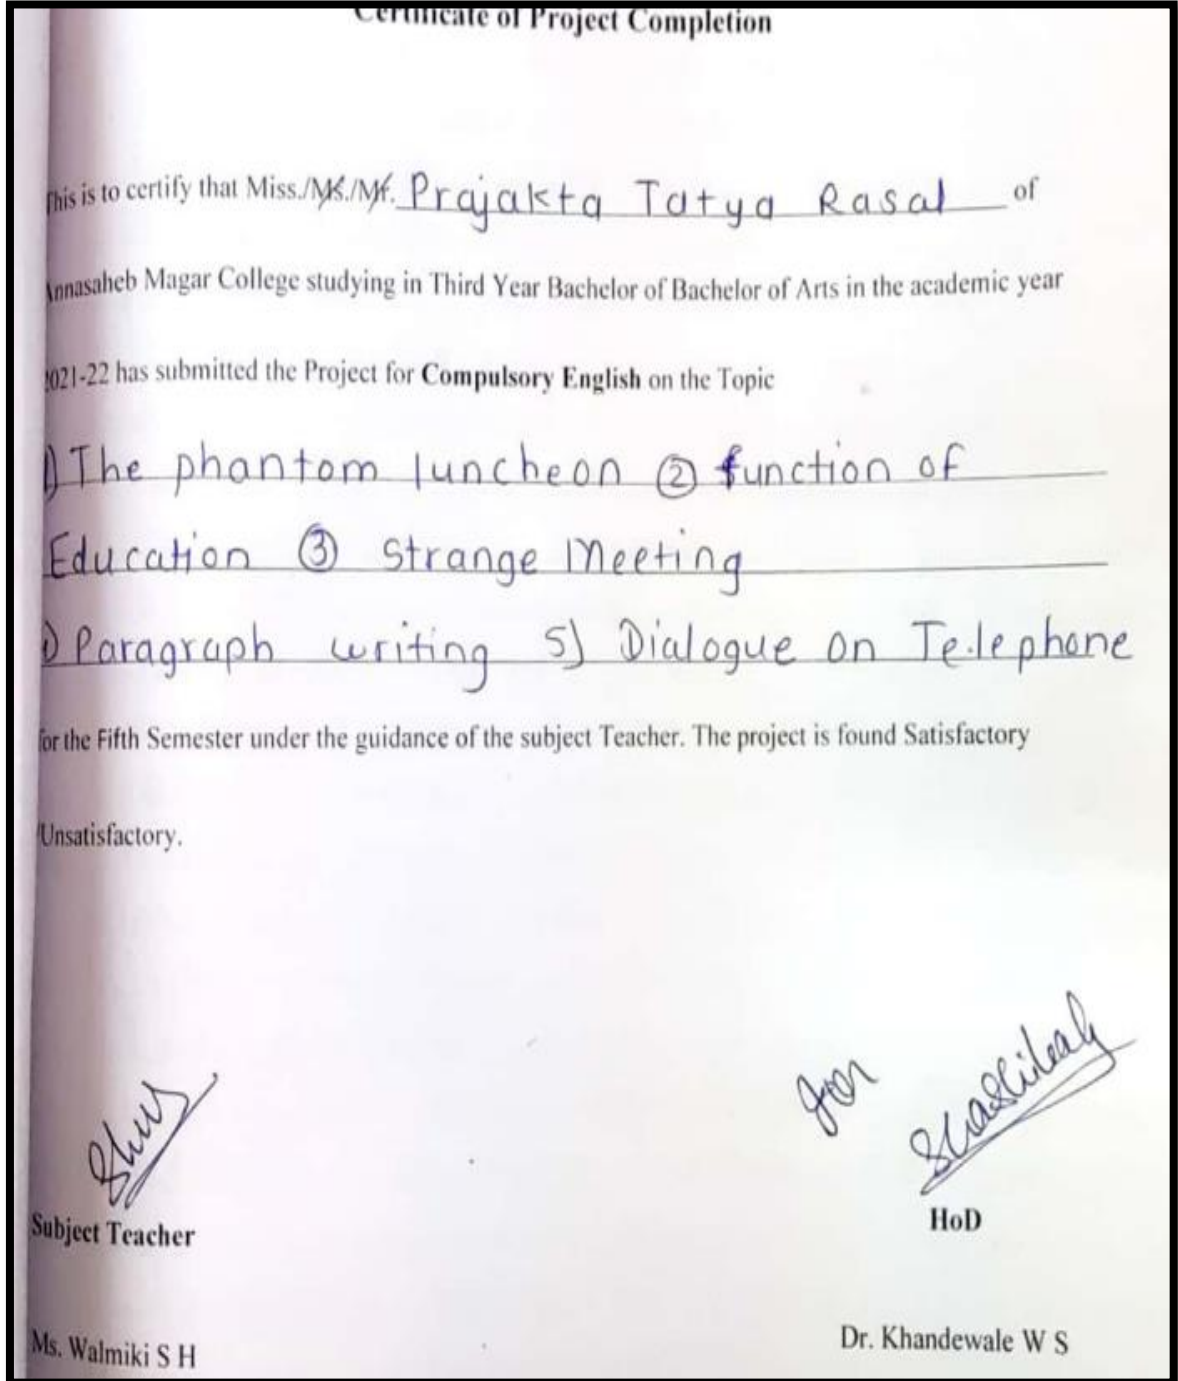 Certificate of Project Completion
This is to certify that Miss./Ms./Mr. Prajakta Tatya Rasal of
Annasaheb Magar College studying in Third Year Bachelor of Bachelor of Arts in the academic year
2021-22 has submitted the Project for Compulsory English on the Topic
1) The phantom luncheon ② function of
Education ③ Strange Meeting
) Paragraph writing 5) Dialogue on Telephone
for the Fifth Semester under the guidance of the subject Teacher. The project is found Satisfactory
/Unsatisfactory.
for
Subject Teacher
HoD
Ms. Walmiki S H
Dr. Khandewale W S